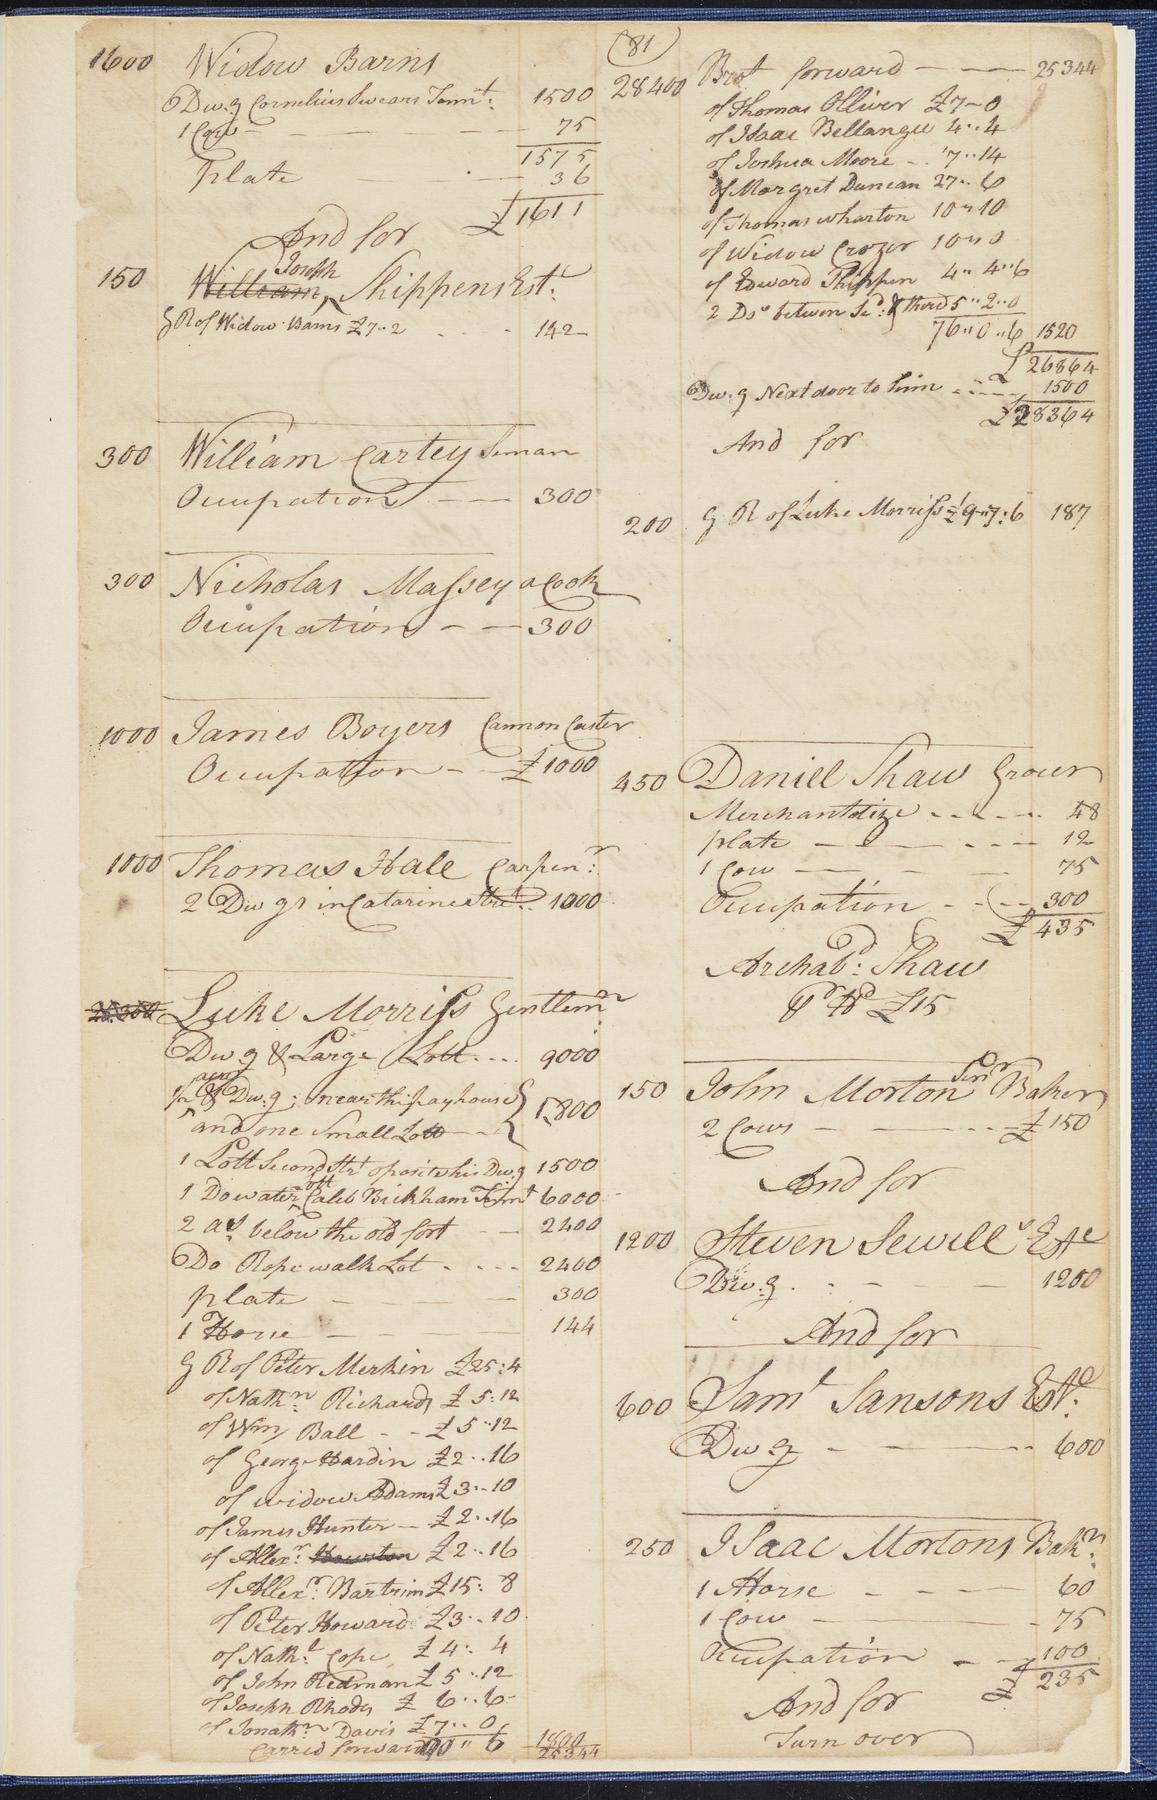 1600 Widow Barns
Dw.g Cornelius Swears Tennt: 1500
1 Cow 75
1575
Plate 36
£1611
And for
Joseph
150 William Shippens Est:
G R of Widow Barns £7..2 142
300 William Cartey Seman
Ocupation 300
300 Nicholas Massey a Cook
Ocupation 300
1000 James Boyers Cannon Caster
Ocupation £1000
1000 Thomas Hale Carpenr:
2 Dwgs in Catarine Stret 1000
Luke Morriss Gentlemn
Dw.g & Large Lott 9000
Dw.g: near the payhouse
and one Small Lott 1800
1 Lott Second Strt oposite his Dw.g 1500
1 Do water Caleb Bickham Tennt 6000
2 as below the old fort 2400
Do Rope walk Lot 2400
plate 300
1 Horse 144
G R of Peter Merkin £25:4
of Nathn: Richards £5:12
of Wm Ball £5..12
of George Hardin £2..16
of widow Adams £3..10
of James Hunter £2..16
of Allexr: Howston £2..16
of Allexr: Bartrim £15:8
of Peter Howard £3..10
of Nathl: Cope £4:4
of John Redman £5..12
of Joseph Rhods £6..6
of Jonathn Davis £7..0
Carred forward 90"6 1800
25344
(81)
28400 Brot forward 25344
of Thomas Olliver £7-0
of Isaac Bellangee 4..4
of Joshua Moore 7..14
of Margret Duncan 27..6
of Thomas Wharton 10"10
of Widow Crozer 10"0
of Edward Shippen 4"4"6
2 Ds between Sed: & therd 5"2"0
76"0"6 1520
£26864
Dw.g Next door to him 1500
£28364
And for
200 G R of Luke Morriss £9"7:6 187
450 Daniel Shaw Grocer
Merchantdize 48
plate 12
1 Cow 75
Ocupation 300
£435
Archabd: Shaw
Pr Hd £15
150 John Morton Senr Baker
2 Cows £150
And for
1200 Steven Sewell's Este
Dw.g 1200
And for
600 Saml Sansons Estd:
Dw g 600
250 Isaac Mortons Bakr:
1 Horse 60
1 Cow 75
Ocupation 100
£235
And for
Turn over